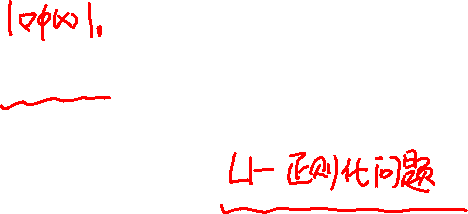 |∇φ(x)|₁
L1-正则化问题